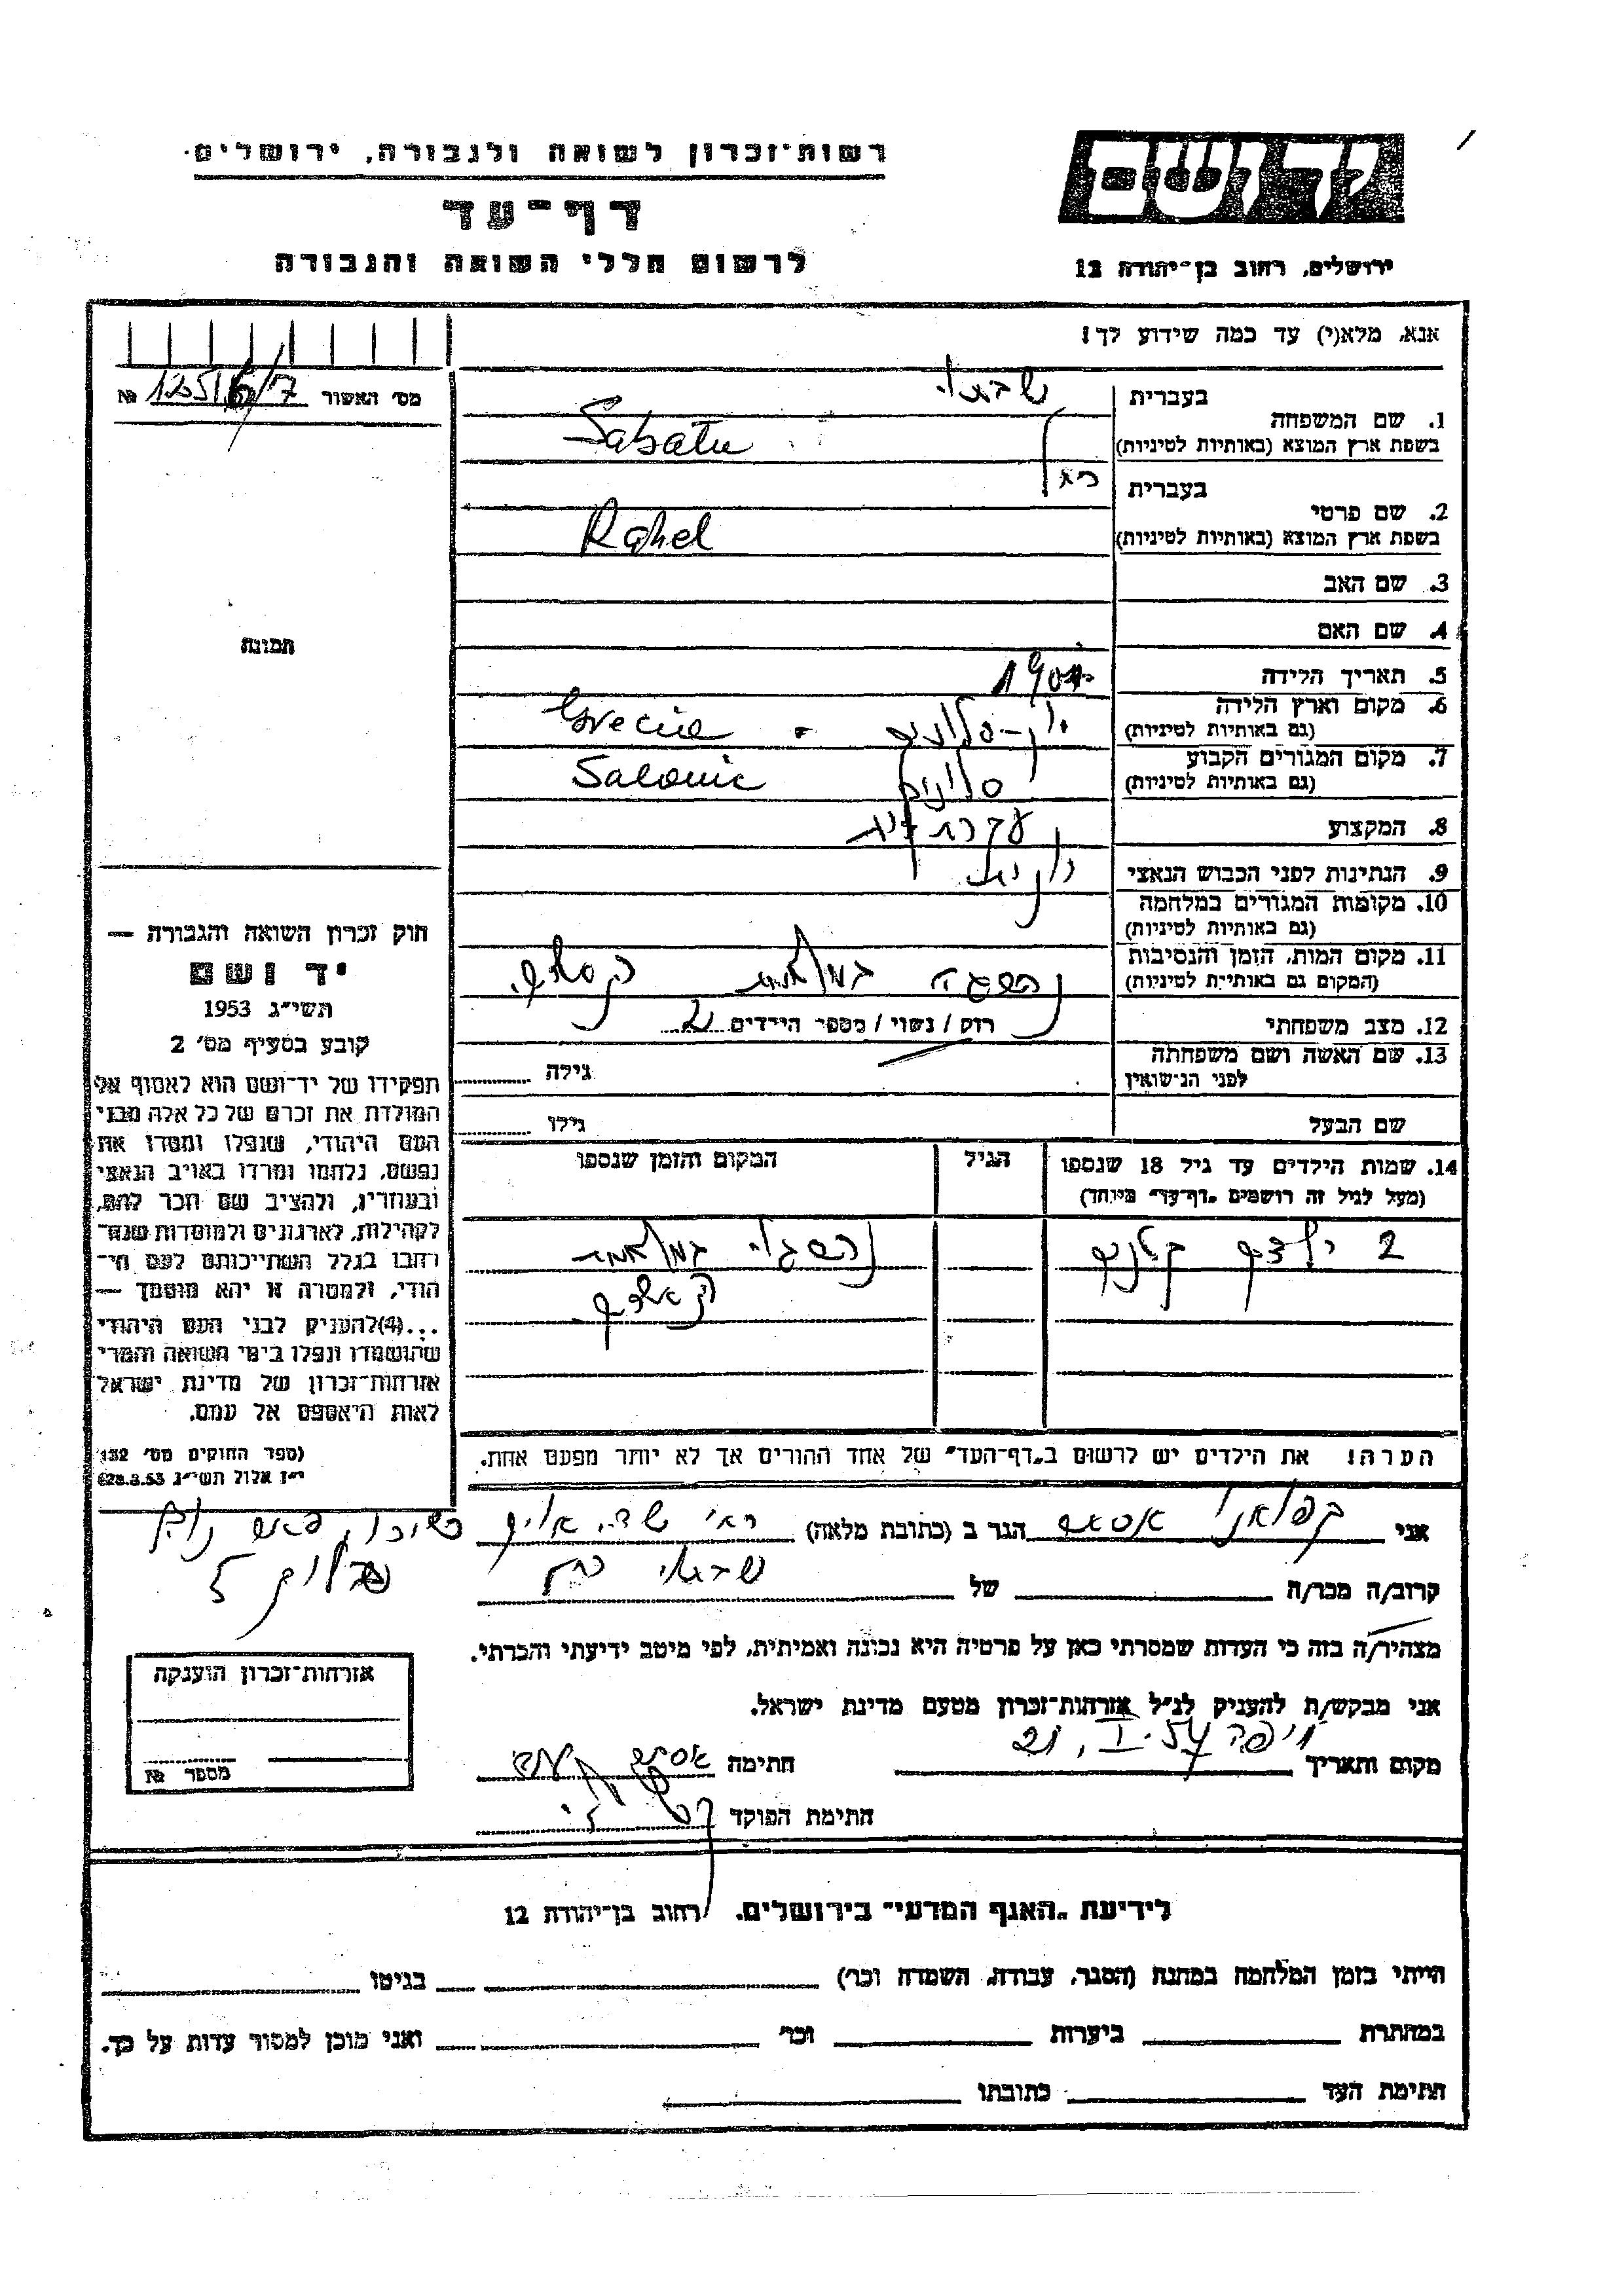 יד ושם
רשות־זכרון לשואה ולגבורה, ירושלים.
דף־עד
לרשום חללי השואה והגבורה
ירושלים, רחוב בן־יהודה 12
אנא, מלא(י) עד כמה שידוע לך!
מס׳ האשור № 12516/7
בעברית שבתאי
1. שם המשפחה
בשפת ארץ המוצא (באותיות לטיניות) Sabatu
בעברית
2. שם פרטי
בשפת ארץ המוצא (באותיות לטיניות) Rahel
3. שם האב
4. שם האם
5. תאריך הלידה
6. מקום וארץ הלידה יון-סלוניקי - Grecia
(גם באותיות לטיניות)
7. מקום המגורים הקבוע סלוניקי Salonic
(גם באותיות לטיניות)
8. המקצוע עקרת בית
9. הנתינות לפני הכבוש הנאצי יונית
10. מקומות המגורים במלחמה
(גם באותיות לטיניות)
11. מקום המות, הזמן והנסיבות נרצחה במחנות
(המקום גם באותיות לטיניות)
12. מצב משפחתי רוק / נשוי / מספר הילדים 2
13. שם האשה ושם משפחתה
לפני הנישואין גילה
שם הבעל גילו
14. שמות הילדים עד גיל 18 שנספו הגיל המקום והזמן שנספו
(מעל לגיל זה רושמים „דף־עד״ מיוחד)
2 ילדים קטנים במחנות
תמונה
חוק זכרון השואה והגבורה —
יד ושם
תשי״ג 1953
קובע בסעיף מס׳ 2
תפקידו של יד־ושם הוא לאסוף אל
המולדת את זכרם של כל אלה מבני
העם היהודי, שנפלו ומסרו את
נפשם, נלחמו ומרדו באויב הנאצי
ובעוזריו, ולהציב שם וזכר להם,
לקהילות, לארגונים ולמוסדות שנח־
רבו בגלל השתייכותם לעם הי־
הודי, ולמטרה זו יהא מוסמך —
...(4) להעניק לבני העם היהודי
שהושמדו ונפלו בימי השואה והמרי
אזרחות־זכרון של מדינת ישראל
לאות היאספם אל עמם.
(ספר החוקים מס׳ 132
י״ז אלול תשי״ג 28.8.53)
הערה! את הילדים יש לרשום ב„דף־העד״ של אחד ההורים אך לא יותר מפעם אחת.
אני הגר ב (כתובת מלאה)
קרוב/ה מכר/ה של שבתאי
מצהיר/ה בזה כי העדות שמסרתי כאן על פרטיה היא נכונה ואמיתית, לפי מיטב ידיעתי והכרתי.
אני מבקש/ת להעניק לנ״ל אזרחות־זכרון מטעם מדינת ישראל.
מקום ותאריך חיפה חתימה
חתימת הפוקד
אזרחות־זכרון הוענקה
מספר №
לידיעת „האגף המדעי״ בירושלים. רחוב בן־יהודה 12
הייתי בזמן המלחמה במחנה (הסגר, עבודה, השמדה וכו׳) בגיטו
במחתרת ביערות וכו׳ ואני מוכן למסור עדות על כך.
חתימת העד כתובתו